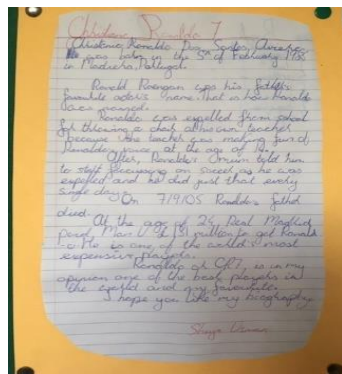 Christiano Ronaldo 7
Christiano Ronaldo Dos Santos Aveiro,
was born in the 5th of February 1985
in Madeira, Portugal.
Ronald Raegan was his father's
favourite actor's name. That is how Ronaldo
was named.
Ronaldo was expelled from school
for throwing a chair at his own teacher
because the teacher was making fun of
Ronaldo's voice, at the age of 14.
After, Ronaldo's mum told him
to start focussing on soccer as he was
expelled and he did just that every
single day.
On 7/9/05 Ronaldo's father
died.
At the age of 24 Real Madrid
paid Man U 131 million to get Ronaldo
. He is one of the world's most
expensive players.
Ronaldo or CR7, is in my
opinion one of the best players in
the world and my favourite.
I hope you like my biography
Usman